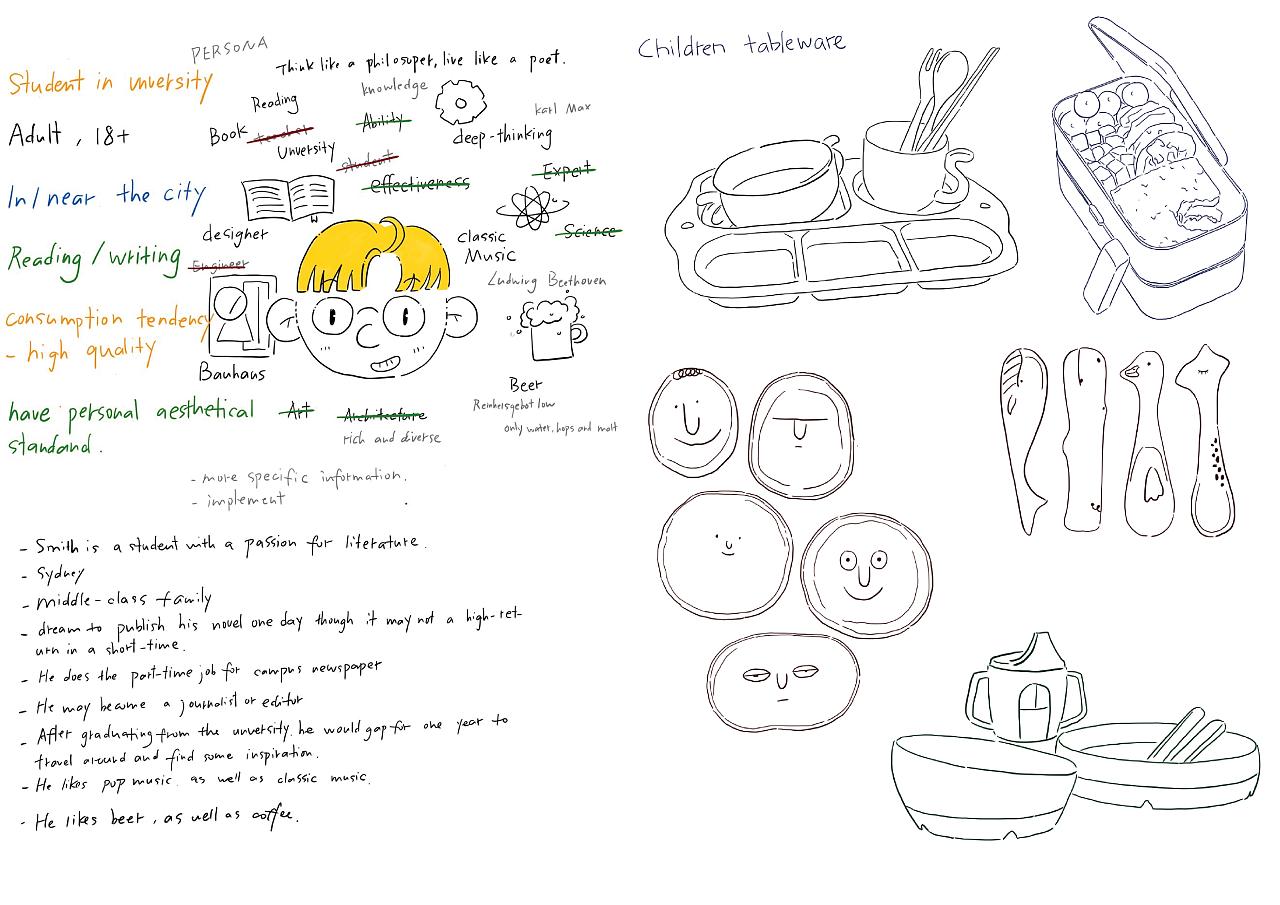 PERSONA
Think like a philosuper, live like a poet.
Student in unversity
Adult , 18+
In/near the city
Reading / writing
consumption tendency
- high quality
have personal aesthetical
standard.
Reading
knowledge
Book
Ability
karl Max
deep-thinking
Unversity
student
effectiveness
Expert
designer
Engineer
classic
Music
Science
Ludwing Beethoven
Bauhaus
Beer
Reinheisgebot low
only water, hops and malt
Art
Architecture
rich and diverse
- more specific information.
- implement
- Smith is a student with a passion for literature.
- Sydney
- middle-class family
- dream to publish his novel one day though it may not a high-ret-
urn in a short-time.
- He does the part-time job for campus newspaper
- He may became a journalist or editor
- After graduating from the unversity. he would gap for one year to
travel around and find some inspiration.
- He likes pop music. as well as classic music.
- He likes beer, as well as coffee.
Children tableware